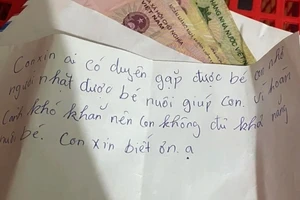 Con xin ai có duyên gặp được bé con nhờ
người nhặt được bé nuôi giúp con. Vì hoàn
cảnh khó khăn nên con không đủ khả năng
nuôi bé. Con xin biết ơn ạ